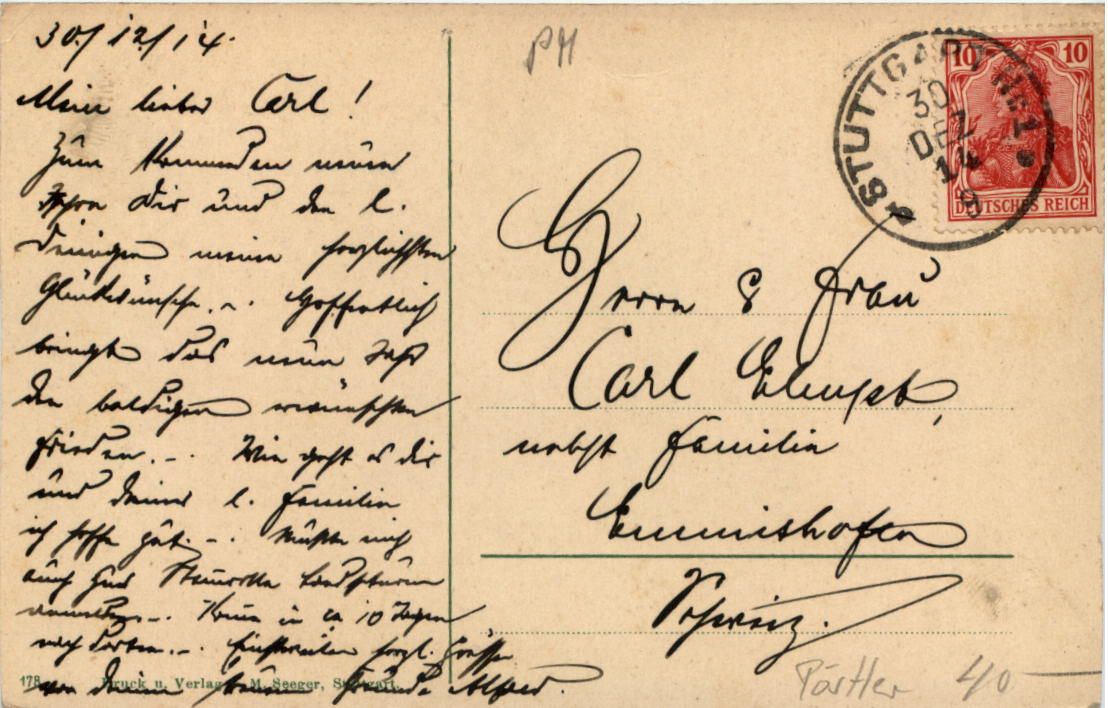 30./12/14.
Mein lieber Carl!
Zum kommenden neuen
Jahre Dir und den l.
Deinigen meine herzlichsten
Glückwünsche. – Hoffentlich
bringt das neue Jahr
den baldigen erwünschten
Frieden. – Wie geht es dir
und deiner l. Familie
ich hoffe gut. – Mußte mich
auch zur Landsturm
Komme in ca 10 Tagen
nach dorten. – Einstweilen herzl. Grüsse
von deinem Freunde Alfred.
178 Druck u. Verlag M. Seeger, Stuttgart.
PH
STUTTGART No. 1
30
DEZ
14
10 10
DEUTSCHES REICH
Herrn & Frau
Carl
nebst Familie
Emmishofen
Schweiz.
40